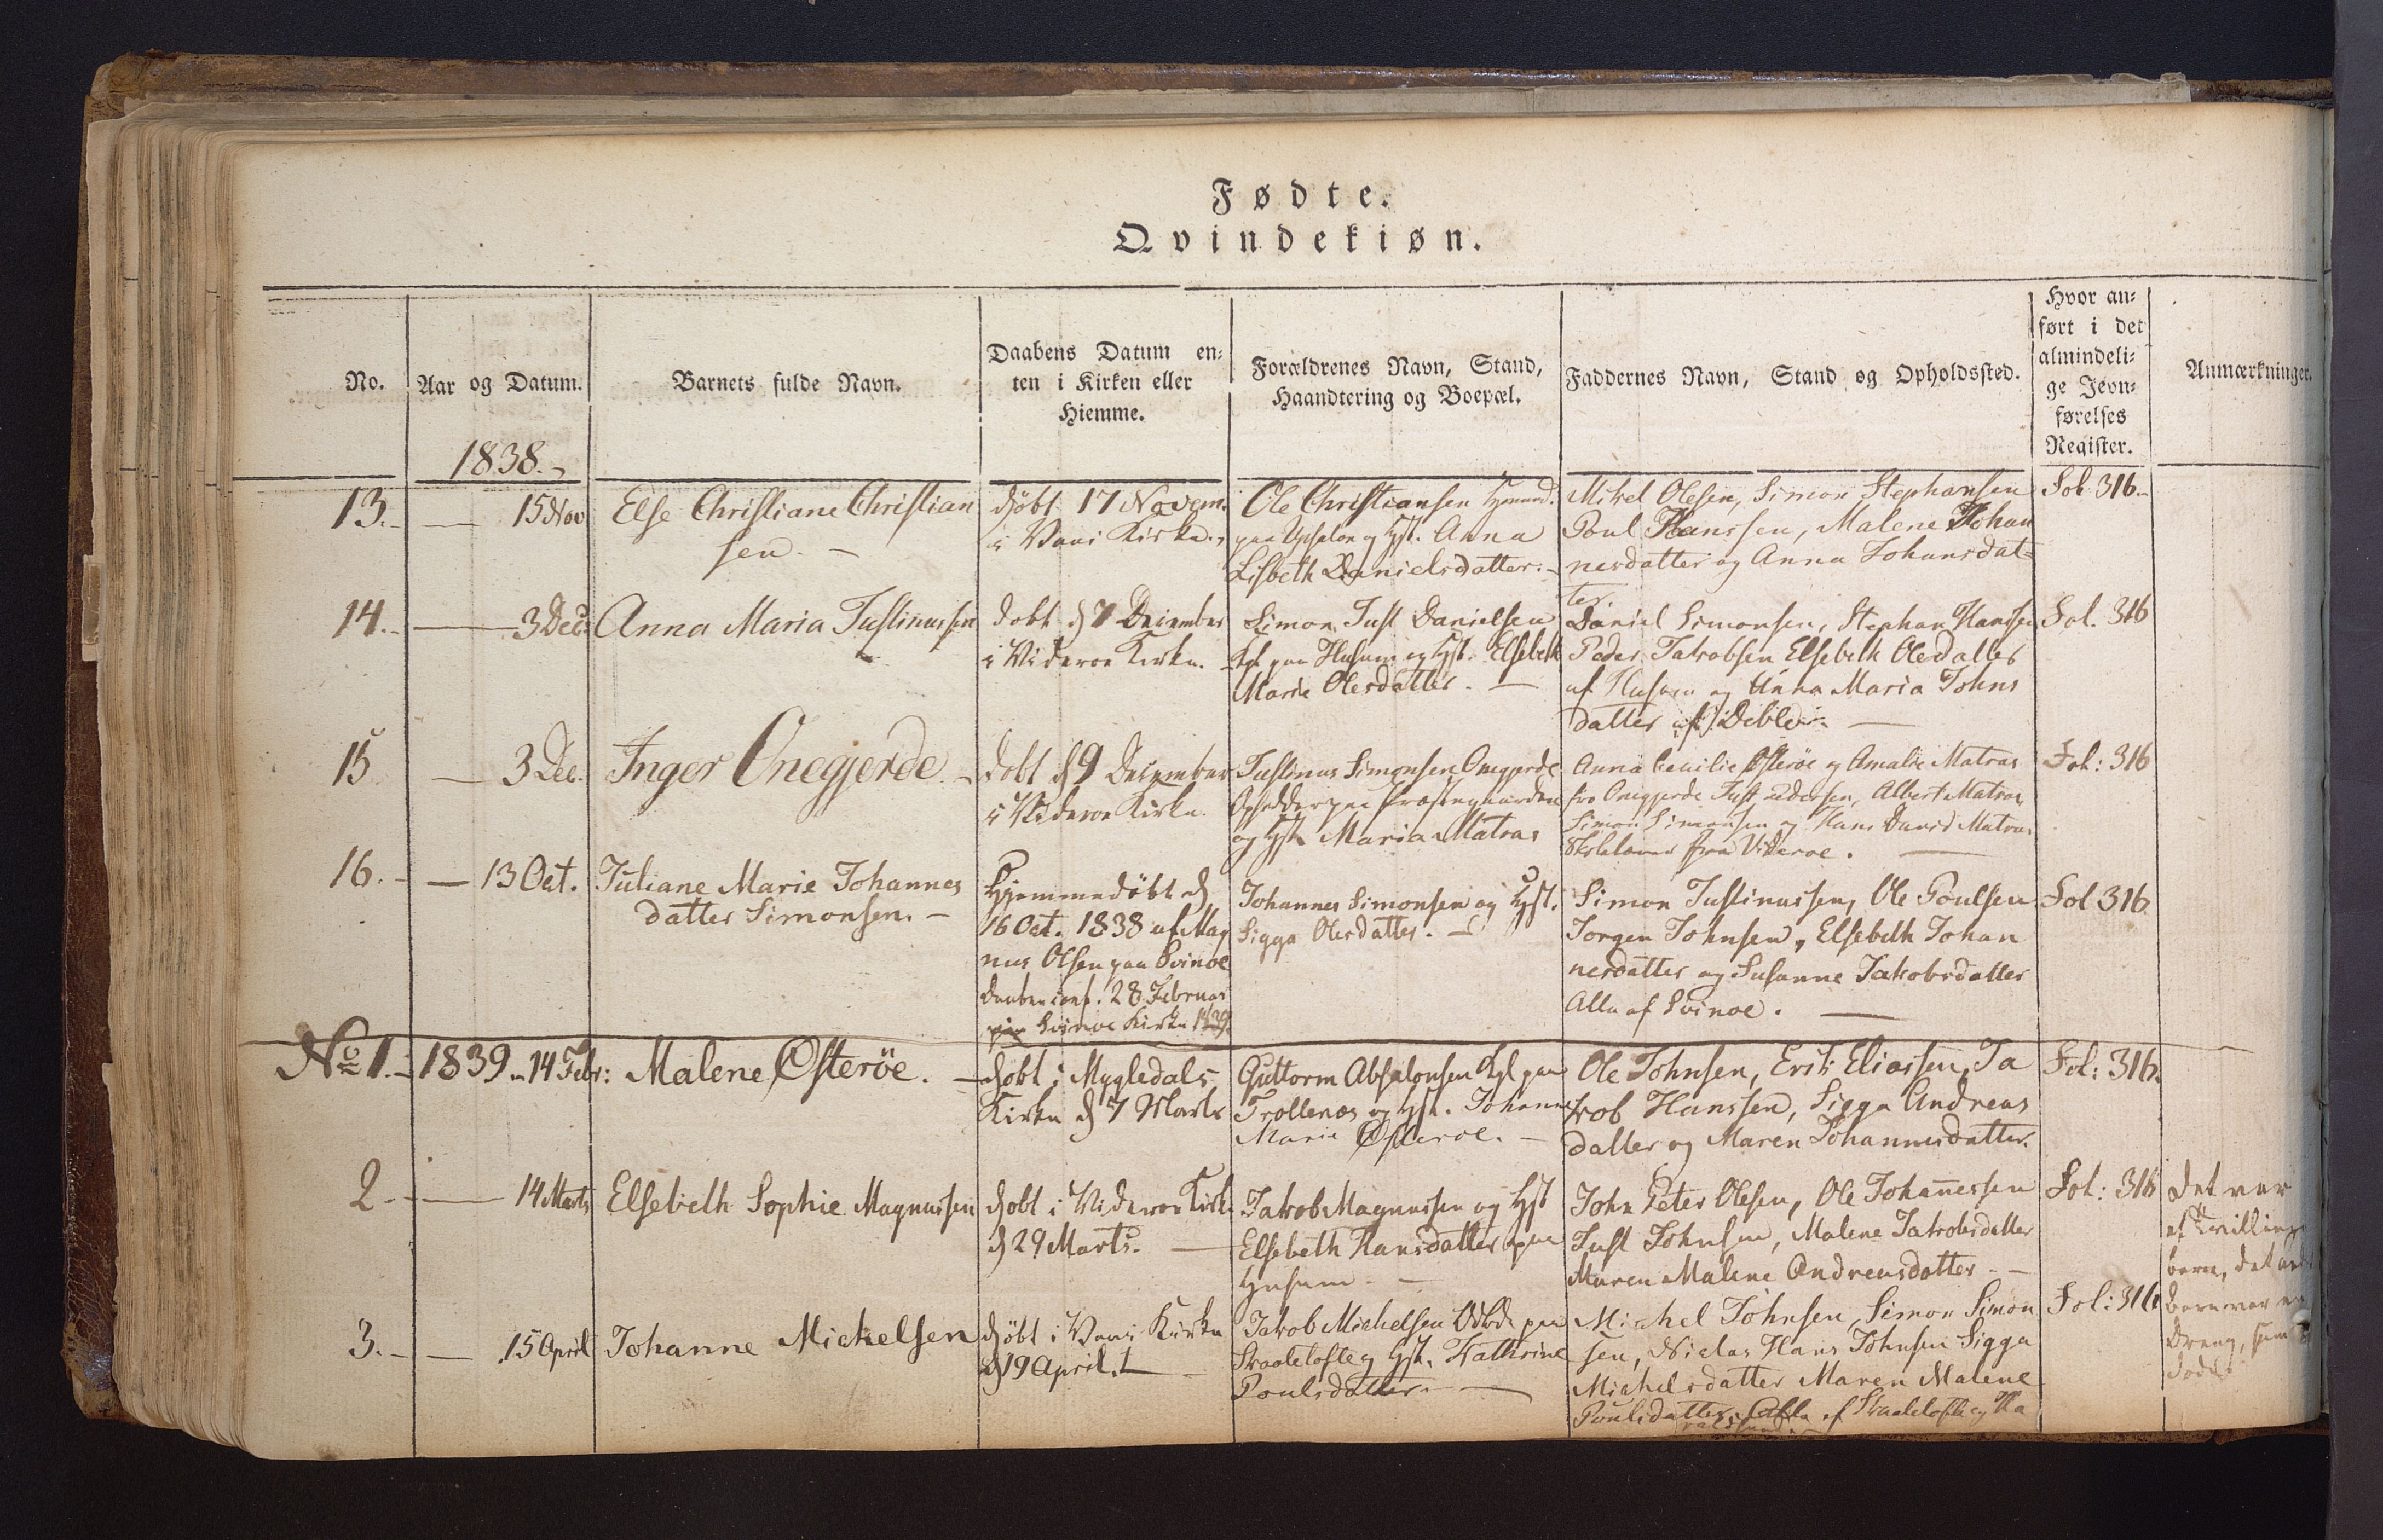 Fødte.
Qvindekiøn.
No.
Aar og Datum.
Barnets fulde Navn.
Daabens Datum en-
ten i Kirken eller
Hiemme.
Forældrenes Navn, Stand,
Haandtering og Boepæl.
Faddernes Navn, Stand og Opholdssted.
Hvor an-
ført i det
almindeli-
ge Jevn-
førelses
Register.
Anmærkninger.
1838.
13.
15 Nov
Else Christiane Christian
sen.
døbt 17 Novem.
i Vaai Kirke.
Ole Christiansen
og Hst. Anna
Lisbeth Danielsdatter.
Mikel Olesen, Simon Stephansen
Poul Hanssen, Malene Johan
nesdatter og Anna Johansdat-
ter.
Fol. 316.
14.
3 Dec.
Anna Maria Justinussen
døbt d 7 December
i Videroe Kirke.
Simon Just Danielsen
paa Husum og Hst. Elsebeth
Marie Olesdatter.
Daniel Simonsen, Stephan Hanssen
Peder Jakobsen Elsebeth Olesdatter
af Husum og Anna Maria Johns
datter af Deble.
Fol. 316
15
3 Dec.
Inger Onegjerde.
døbt d 9 December
i Videroe Kirke.
Justinus Simonsen Onegjerde
Opsidder paa Præstegaarden
og Hst. Maria Matras
Anna Cecilie Østerøe og Amalie Matras
fra Onegjerde Just Pedersen, Albert Matras,
Simon Simonsen og Hans David Matras
fra Videroe.
Fol: 316
16.
13 Oct.
Juliane Marie Johannes
datter Simonsen.
Hjemmedøbt d
16 Oct. 1838 af Mag
nus Olsen paa Svinoe
Daaben conf. 28 Februar
Svinoe Kirke 1839.
Johannes Simonsen og Hst.
Sigga Olesdatter.
Simon Justinussen, Ole Poulsen
Jorgen Johnsen, Elsebeth Johan
nesdatter og Susanne Jakobsdatter
Alle af Svinoe.
Fol 316
No 1.
1839. 14 Febr:
Malene Østerøe.
døbt i Mygledals
Kirke d 7 Marts
Guttorm Absalonsen Kgl paa
Trollenæs og Hst. Johanne
Marie Østeroe.
Ole Johnsen, Erik Eliassen, Ja
kob Hanssen, Sigga Andreas
datter og Maren Johannesdatter.
Fol: 316.
2.
14 Marts
Elsebeth Sophie Magnussen
døbt i Videroe Kirke
d 29 Marts.
Jakob Magnussen og Hst
Elsebeth Hansdatter paa
Husum.
John Peter Olesen, Ole Johannessen
Just Johnsen, Malene Jakobsdatter
Maren Malene Andreasdatter.
Fol: 316
Det var
et Tvillinge
barn, det
barn var en
Dreng, som
døde
3.
15 April
Johanne Michelsen
døbt i Vaai Kirke
d 19 April.
Jakob Michelsen paa
Skaalelofte og Hst. Kathrine
Poulsdatter.
Michel Johnsen, Simon Simon
sen, Niclas Hans Johnsen Sigga
Michelsdatter Maren Malene
Poulsdatter, alle af Skaalelofte og Ha
ralssund.
Fol: 316